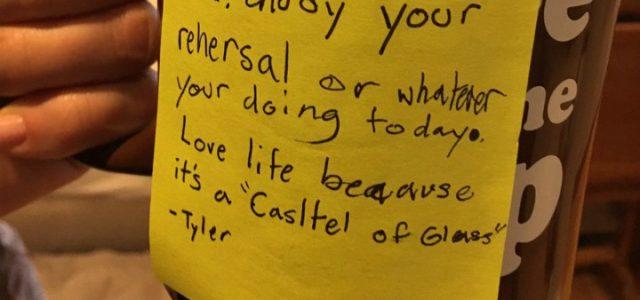 enjoy your
rehersal or whatever
your doing today.
Love life beacause
it's a "Casltel of Glass"
-Tyler
e
ne
p